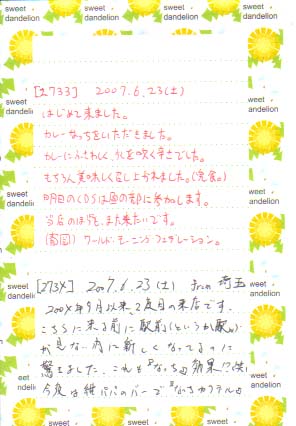 sweet dandelion
sweet dandelion
sweet dandelion
[2733] 2007.6.23(土)
はじめて来ました。
カレーなっちをいただきました。
カレーにふさわしく、火を吹く辛さでした。
もちろん美味しく召し上がれました。(完食。)
明日のCDSは昼の部に参加します。
当店のほうも、また来たいです。
ワールド・モーニング・フェデレーション。
[2734] 2007.6.23(土) from 埼玉
2004年9月以来、2度目の来店です。
こちらに来る前に駅前(というか駅)
が見ない内に新しくなってるのに
驚きました…これも"なっち"効果!?(笑)
今度は パパのバーで "なっちカクテル"